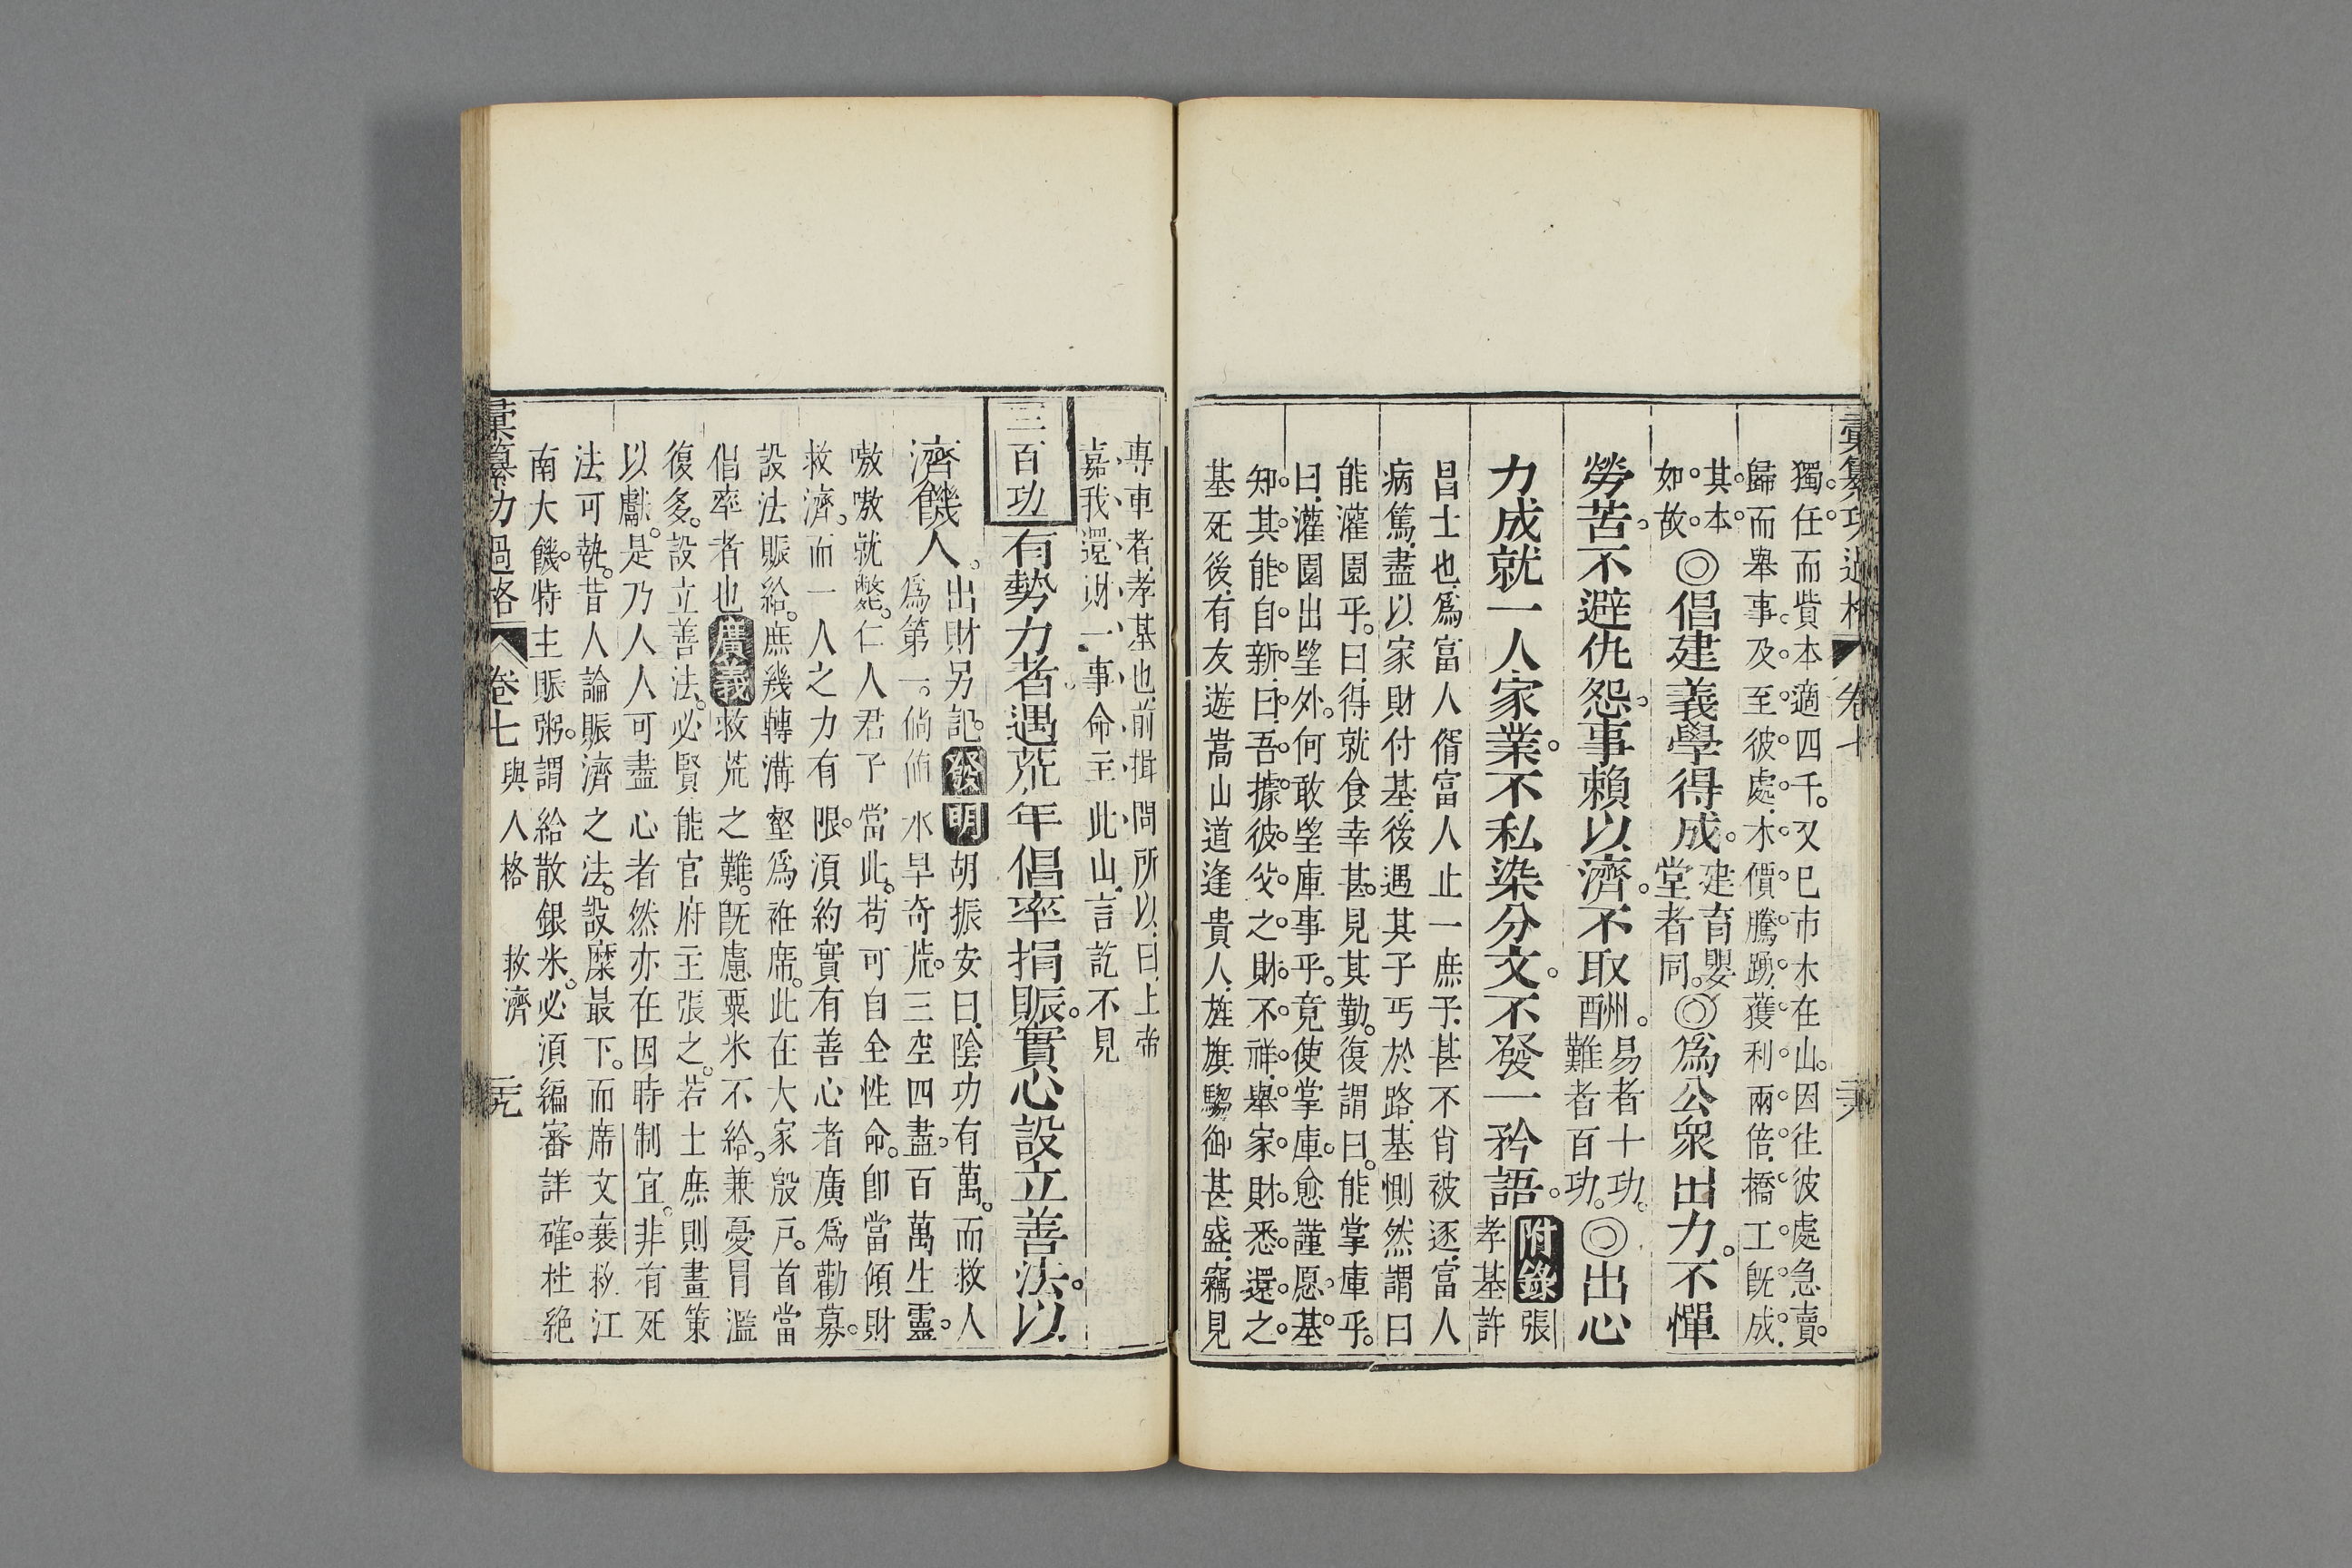 彙纂功過格 卷七 二六
獨任而貲本適四千。又巳市木在山。因往彼處急賣。
歸而舉事。及至彼處。木價騰踴。獲利兩倍。橋工旣成。
其本
如故。◎倡建義學得成。建育嬰
堂者同。◎爲公衆出力。不憚
勞苦。不避仇怨。事賴以濟。不取酬。易者十功。
難者百功。◎出心
力成就一人家業。不私染分文。不發一矜語。附錄張
孝基許
昌士也。爲富人壻富人止一庶子。甚不肖被逐。富人
病篤。盡以家財付基。後遇其子丐於路。基惻然謂曰
能灌園乎。曰。得就食幸甚。見其勤。復謂曰。能掌庫乎。
曰。灌園出望外。何敢望庫事乎。竟使掌庫。愈謹愿。基
知其能自新。曰。吾據彼父之財。不祥。舉家財悉還之。
基死後。有友遊嵩山道逢貴人。旌旗騶御甚盛。竊見
專車者。孝基也。前揖問所以。曰。上帝
嘉我還財一事。命主此山。言訖不見
三百功 有勢力者遇荒年倡率捐賑。實心設立善法。以
濟饑人。出財另記。
爲第一。發明胡振安曰。陰功有萬。而救人
倘値水旱奇荒。三空四盡。百萬生靈。
嗷嗷就斃。仁人君子當此。苟可自全性命。卽當傾財
救濟。而一人之力有限。須約實有善心者廣爲勸募。
設法賑給。庶幾轉溝壑爲袵席。此在大家殷戶。首當
倡率者也廣義救荒之難。旣慮粟米不給。兼憂冒濫
復多。設立善法。必賢能官府主張之。若士庶則畫策
以獻。是乃人人可盡心者然亦在因時制宜。非有死
法可執。昔人論賑濟之法。設糜最下。而席文襄救江
南大饑。特主賑粥。謂給散銀米。必須編審詳確。杜絕
彙纂功過格 卷七 與人格 救濟 二九